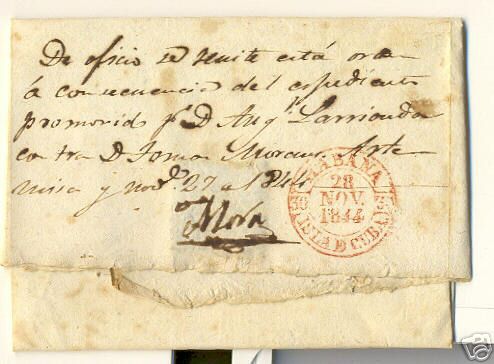 De oficio se remite esta orden
á consecuencia del espediente
promovido pr. D Angl. Larriondo
contra D Tomas Morau Arte
misa y nove. 27 de 1844
Mora
HABANA
28
NOV.
1844
ISLA D CUBA